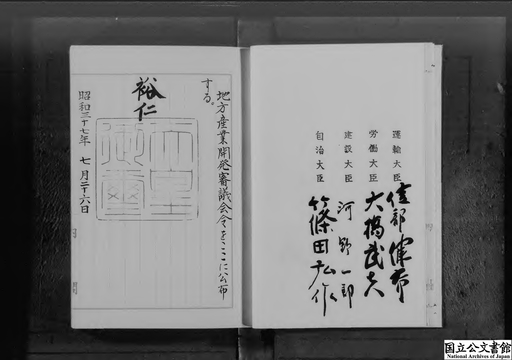 地方産業開発審議会令をここに公布
する。
裕仁
天皇
御璽
昭和三十七年 七月二十六日
運輸大臣 綾部健太郎
労働大臣 大橋武夫
建設大臣 河野一郎
自治大臣 篠田弘作
国立公文書館
National Archives of Japan